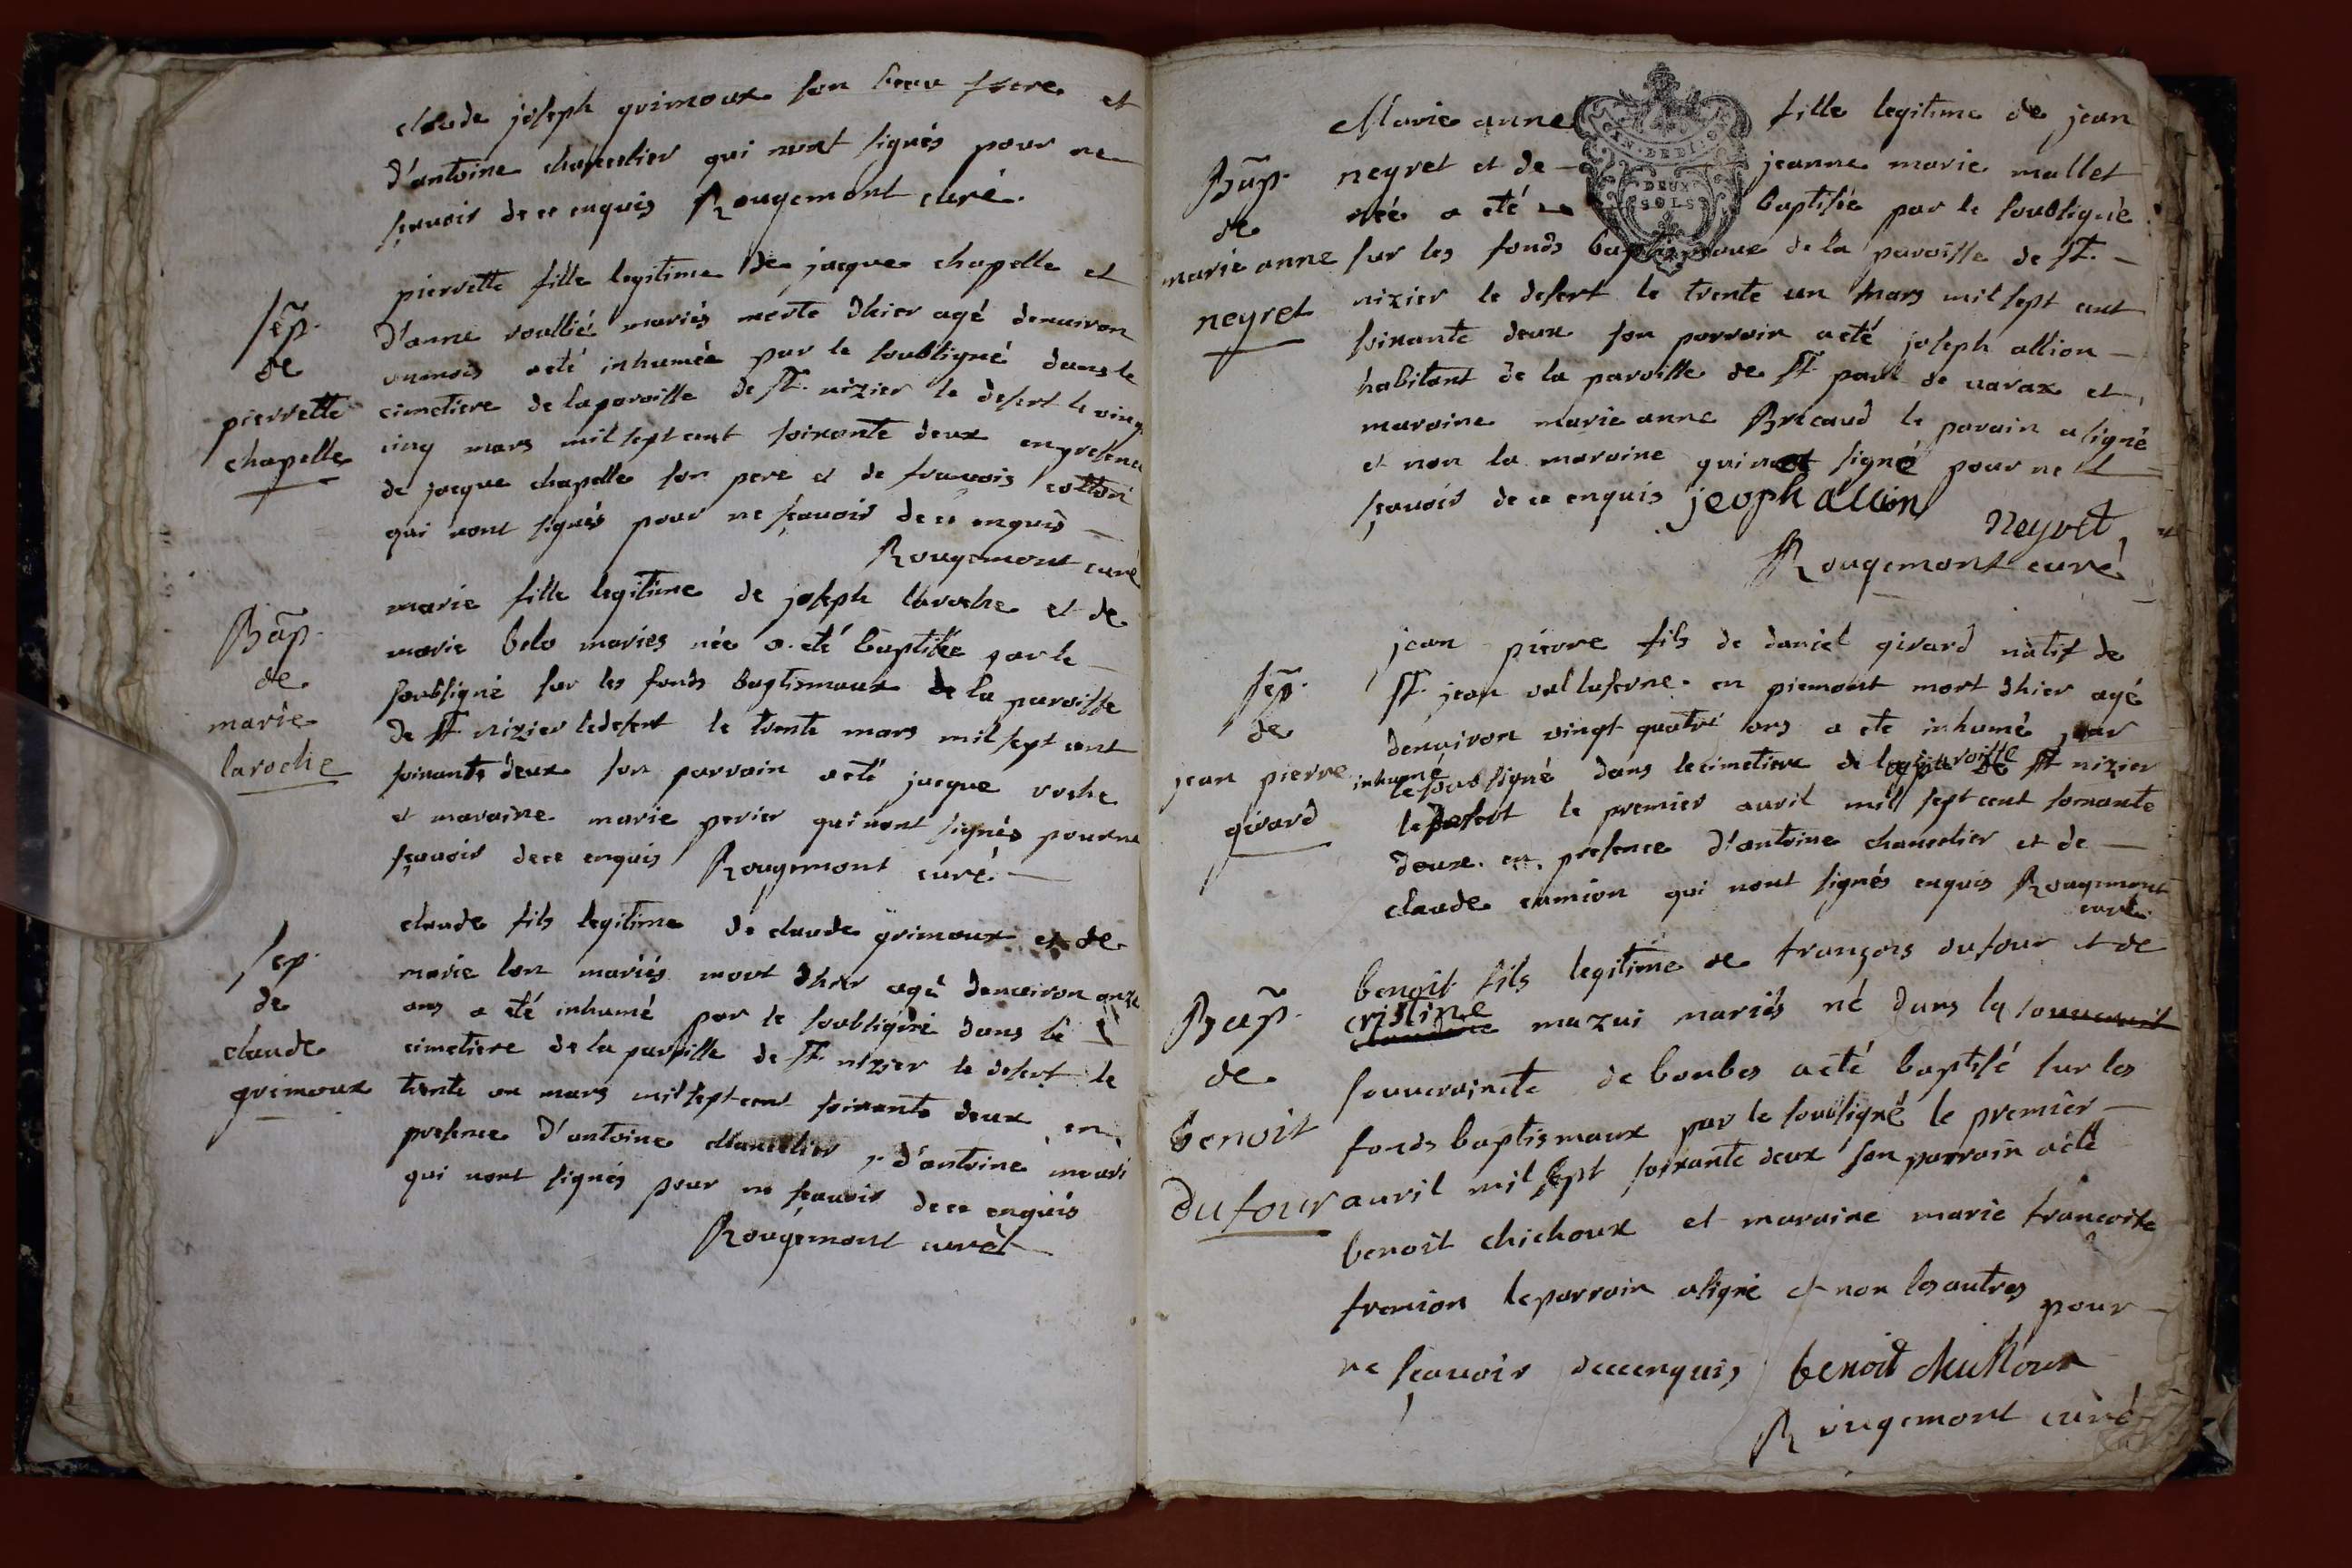 claude joseph grimoux son beau frere et
d'antoine chancelier qui nont signés pour ne
sçavoir de ce enquis Rougemont curé.
sep.
de
pierrette
chapelle
pierrette fille legitime de jacque chapelle et
d'anne roullié mariés morte d'hier agé denuiron
un mois a eté inhumée par le soubsigné dans le
cimetiere de la paroisse de st. nizier le desert le vingt
cinq mars mil sept cent soixante deux en presence
de jacque chapelle son pere et de francois cotton
qui nont signés pour ne sçavoir de ce enquis
Rougemont curé
Bap.
de
marie
laroche
marie fille legitime de joseph laroche et de
marie belo mariés née a eté baptisée par le
soubsigné sur les fonds baptismaux de la paroisse
de st nizier le desert le trente mars mil sept cent
soixante deux son parrain a eté jacque roche
et maraine marie perier qui nont signés pour ne
sçavoir de ce enquis Rougemont curé.
sep.
de
claude
grimoux
claude fils legitime de claude grimoux et de
marie mariés mort d'hier agé denuiron onze
ans a eté inhumé par le soubsigné dans le
cimetiere de la paroisse de st. nizier le desert le
trente un mars mil sept cent soixante deux en
presence d'antoine chancelier d'antoine
qui nont signés pour ne sçavoir de ce enquis
Rougemont curé
Bap.
de
marie anne
neyret
Marie anne fille legitime de jean
neyret et de jeanne marie mallet
née a eté baptisée par le soubsigné
sur les fonds baptismaux de la paroisse de st.
nizier le desert le trente un mars mil sept cent
soixante deux son parrain a eté joseph allion
habitant de la paroisse de st paul de varax et
maraine marie anne Bricaud le parain a signé
et non la maraine qui na signé pour ne
sçavoir de ce enquis jeoph allion
neyret
Rougemont curé
DEUX
SOLS
sep.
de
jean pierre
girard
jean pierre fils de daniel girard natif de
st. jean val luserne en piemont mort d'hier agé
denuiron vingt quatre ans a ete inhumé par
inhumé le soubsigné dans le cimetiere de la paroisse de st nizier
le desert le premier auril mil sept cent soixante
deux en presence d'antoine chancelier et de
claude camion qui nont signés enquis Rougemont
curé
Bap.
de
benoit
dufour
benoit fils legitime de françois dufour et de
cristine mazui mariés né dans la
souuerainete de bombes a eté baptisé sur les
fonds baptismaux par le soubsigné le premier
auril mil sept soixante deux son parrain a eté
benoit chichoux et maraine marie francoise
fremion le parrain a signé et non les autres pour
ne sçavoir de ce enquis benoit chichoux
Rougemont curé